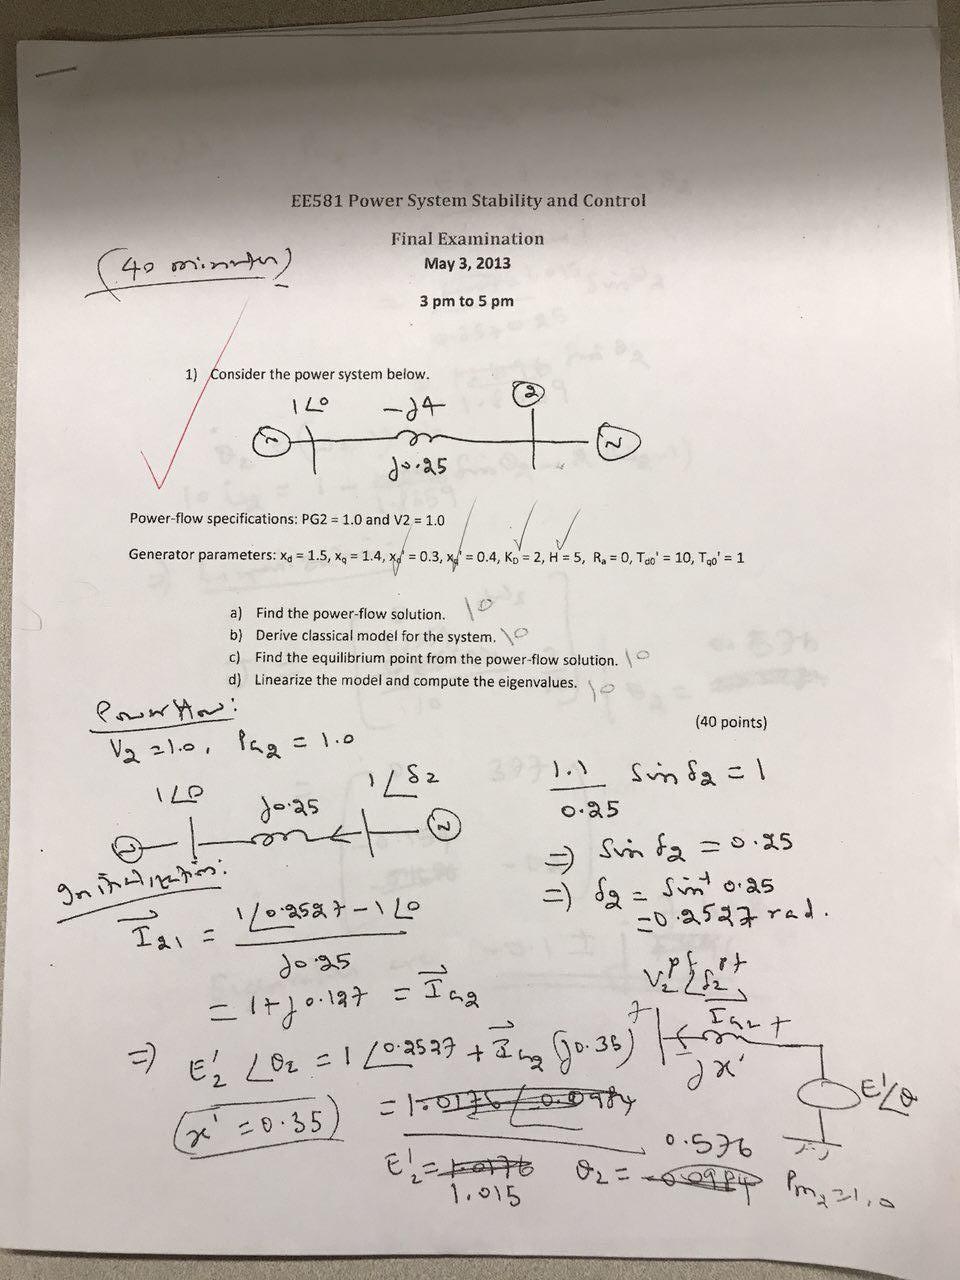 EE581 Power System Stability and Control
Final Examination
(40 minutes)
May 3, 2013
3 pm to 5 pm
1) Consider the power system below.
1∠0
-j4
2
~
~
j0.25
Power-flow specifications: PG2 = 1.0 and V2 = 1.0
Generator parameters: xd = 1.5, xq = 1.4, xd' = 0.3, xq' = 0.4, KD = 2, H = 5, Ra = 0, Tdo' = 10, Tqo' = 1
a) Find the power-flow solution. 10
b) Derive classical model for the system. 10
c) Find the equilibrium point from the power-flow solution. 10
d) Linearize the model and compute the eigenvalues. 10
(40 points)
Powerflow:
V2 = 1.0, PG2 = 1.0
1∠0
j0.25
1∠δ2
~
~
1.1/0.25 sin δ2 = 1
⇒ sin δ2 = 0.25
⇒ δ2 = sin⁻¹ 0.25
= 0.2527 rad.
Initialization:
I21 = (1∠0.2527 - 1∠0) / j0.25
= 1 + j0.127 = IG2
V2^pf ∠δ2^pf
IG2
+
+
jx'
E'∠θ
⇒ E2' ∠θ2 = 1∠0.2527 + IG2 (j0.35)
(x' = 0.35)
= 1.0176 ∠0.0984
E2' = 1.0176
1.015
θ2 = 0.0984
0.576
Pm2 = 1.0